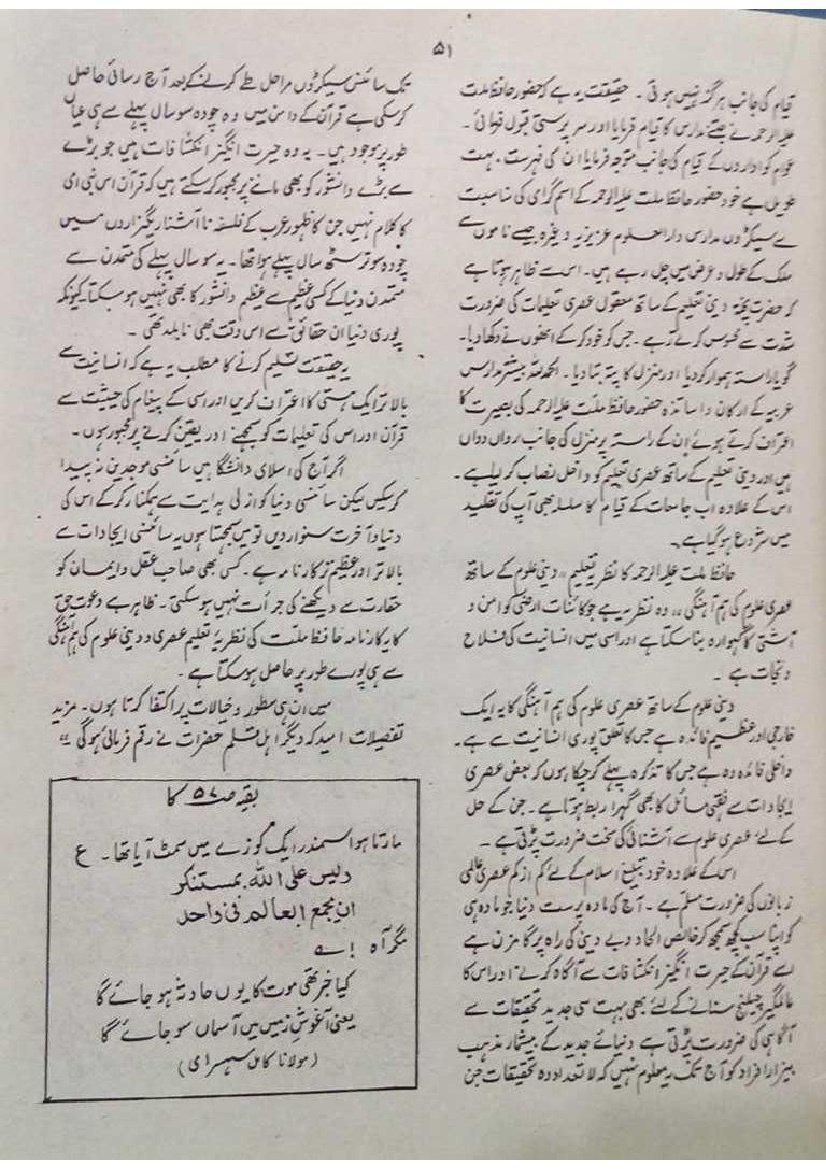 ۵۱
قیام کی جانب ہرگز نہیں ہوئی ۔ حقیقت یہ ہے کہ حضور حافظ ملت
علیہ الرحمہ نے جتنے مدارس کا قیام فرمایا اور سرپرستی قبول فرمائی ۔
عوام کو اداروں کے قیام کی جانب متوجہ فرمایا ان کی فہرست بہت
طویل ہے خود حضور حافظ ملت علیہ الرحمہ کے اسم گرامی کی مناسبت
سے سیکڑوں مدارس دارالعلوم عزیزیہ وغیرہ جیسے ناموں سے
ملک کے طول و عرض میں چل رہے ہیں۔ اس سے ظاہر ہوتا ہے
کہ حضرت پختہ دینی تعلیم کے ساتھ معقول عصری تعلیمات کی ضرورت
شدت سے محسوس کرتے رہے ۔ جس کو خود کر کے انھوں نے دکھا دیا۔
گویا راستہ ہموار کر دیا اور منزل کا پتہ بتا دیا ۔ الحمدللہ بیشتر مدارس
عربیہ کے ارکان و اساتذہ حضور حافظ ملت علیہ الرحمہ کی بصیرت کا
اعتراف کرتے ہوئے ان کے راستہ پر منزل کی جانب رواں دواں
ہیں اور دینی تعلیم کے ساتھ عصری تعلیم کو داخل نصاب کر لیا ہے ۔
اس کے علاوہ اب جامعات کے قیام کا سلسلہ بھی آپ کی تقلید
میں شروع ہو گیا ہے ۔
حافظ ملت علیہ الرحمہ کا نظریہ تعلیم ،، دینی علوم کے ساتھ
عصری علوم کی ہم آہنگی ،، وہ نظریہ ہے جو کائنات ارضی کو امن و
آشتی کا گہوارہ بنا سکتا ہے اور اسی میں انسانیت کی فلاح
و نجات ہے ۔
دینی علوم کے ساتھ عصری علوم کی ہم آہنگی کا یہ ایک
خارجی اور عظیم فائدہ ہے جس کا تعلق پوری انسانیت سے ہے ۔
داخلی فائدہ وہ ہے جس کا تذکرہ پہلے کر چکا ہوں کہ بعض عصری
ایجادات سے فقہی مسائل کا بھی گہرا ربط ہوتا ہے ۔ جن کے حل
کے لئے عصری علوم سے آشنائی کی سخت ضرورت پڑتی ہے ۔
اس کے علاوہ خود تبلیغ اسلام کے لئے کم از کم عصری عالمی
زبانوں کی ضرورت مسلم ہے ۔ آج کی مادہ پرست دنیا جو مادہ ہی
کو اپنا سب کچھ سمجھ کر خالص الحاد و بے دینی کی راہ پر گامزن ہے
اسے قرآن کے حیرت انگیز انکشافات سے آگاہ کرنے اور اس کا
عالمگیر چیلنج سنانے کے لئے بھی بہت سی جدید تحقیقات سے
آگاہی کی ضرورت پڑتی ہے دنیائے جدید کے بیشمار مذہب
بیزار افراد کو آج تک یہ معلوم نہیں کہ لا تعداد وہ تحقیقات جن
تک سائنس سیکڑوں مراحل طے کرنے کے بعد آج رسائی حاصل
کرسکی ہے قرآن کے دامن میں وہ چودہ سو سال پہلے سے ہی عیاں
طور پر موجود ہیں ۔ یہ وہ حیرت انگیز انکشافات ہیں جو بڑے
سے بڑے دانشور کو بھی ماننے پر مجبور کر سکتے ہیں کہ قرآن اس نبی امی
کا کلام نہیں جن کا ظہور عرب کے فلسفہ نا آشنا ریگزاروں میں
چودہ سو ترسٹھ سال پہلے ہوا تھا ۔ یہ سو سال پہلے کی متمدن سے
متمدن دنیا کے کسی عظیم سے عظیم دانشور کا بھی نہیں ہو سکتا کیونکہ
پوری دنیا ان حقائق سے اس وقت بھی نابلد تھی ۔
یہ حقیقت تسلیم کرنے کا مطلب یہ ہے کہ انسانیت سے
بالاتر ایک ہستی کا اعتراف کریں اور اسی کے پیغام کی حیثیت سے
قرآن اور اس کی تعلیمات کو سمجھنے اور یقین کرنے پر مجبور ہوں ۔
اگر آج کی اسلامی دانشگاہیں سائنسی موجدین نہ پیدا
کر سکیں لیکن سائنسی دنیا کو ازلی ہدایت سے ہمکنار کر کے اس کی
دنیا و آخرت سنوار دیں تو میں سمجھتا ہوں یہ سائنسی ایجادات سے
بالاتر اور عظیم تر کارنامہ ہے ۔ کسی بھی صاحب عقل و ایمان کو
حقارت سے دیکھنے کی جرأت نہیں ہو سکتی ۔ ظاہر ہے دعوت حق
کا یہ کارنامہ حافظ ملت کی نظریۂ تعلیم عصری و دینی علوم کی ہم آہنگی
سے ہی پورے طور پر حاصل ہو سکتا ہے ۔
میں ان ہی سطور و خیالات پر اکتفا کرتا ہوں ۔ مزید
تفصیلات امید کہ دیگر اہل قلم حضرات نے رقم فرمائی ہوگی ؞
بقیہ صـ ۵۷ کا
مارتا ہوا سمندر ایک کوزے میں سمٹ آیا تھا ۔ ع
ولیس علی اللہ بمستنکر
ان یجمع العالم فی واحد
مگر آہ ! ؎
کیا خبر تھی موت کا یوں حادثہ ہو جائے گا
یعنی آغوش زمیں میں آسماں سو جائے گا
(مولانا کامل سہسرامی)